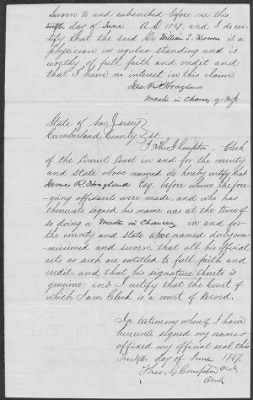 Sworn to and subscribed before me this
day of June A.D. 1867, and I do cer-
tify that the said Dr William S. Bowen is a
physician in regular standing and is
worthy of full faith and credit and
that I have no interest in this claim
Jas. R. Hoagland
Master in Chancery of N.J.
State of New Jersey
Cumberland County ss.
I Theo. G. Compton, Clerk
of the Circuit Court in and for the county
and State above named do hereby certify that
James R. Hoagland Esq before whom the fore-
going affidavits were made, and who has
thereunto signed his name was at the time of
so doing a Master in Chancery in and for
the county and state above named duly com-
missioned and sworn, that all his official
acts as such are entitled to full faith and
credit, and that his signature thereto is
genuine, and I certify that the Court of
which I am Clerk is a court of Record.
In testimony whereof I have
hereunto signed my name &
affixed my official seal this
day of June 1867.
Theo. G. Compton
Clerk